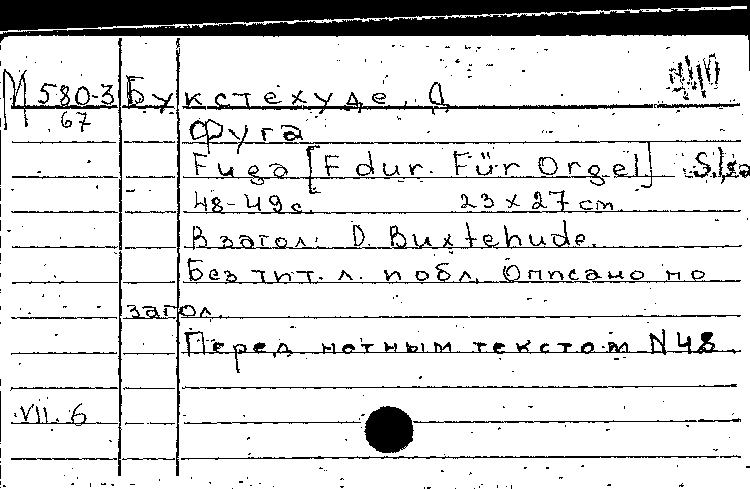 М 580-3 Букстехуде, Д
67
Фуга
Fuga [F dur. Für Orgel]
48-49 с. 23 x 27 cm
В загол: D. Buxtehude.
Без тит. л. и обл. Описано по
загол.
Перед нотным текстом N 48.
VII. 6